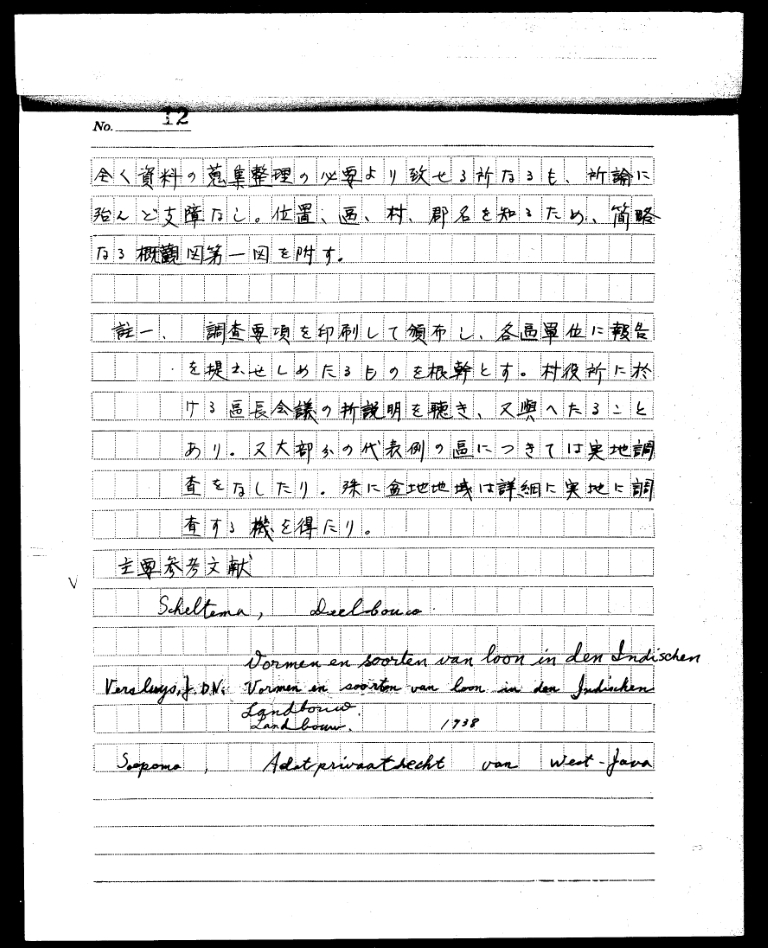 No. 12
全く資料の蒐集整理の必要より致せる所なるも、所論に
殆んど支障なし。位置、區、村、郡名を知るため、簡略
なる概觀図第一図を附す。
註一、 調査要項を印刷して頒布し、各區單位に報告
を提出せしめたるものを根幹とす。村役所に於
ける區長会議の折説明を聴き、又與へたること
あり。又大部分の代表例の區につきては実地調
査をなしたり。殊に盆地地域は詳細に実地に調
査する機を得たり。
主要参考文献
Scheltema, Deelbouw.
Vormen en soorten van loon in den Indischen
Versluys, J.D.N. Vormen en soorten van loon in den Indischen
Landbouw.
Landbouw. 1938
Soepomo, Adatprivaatrecht van West-Java